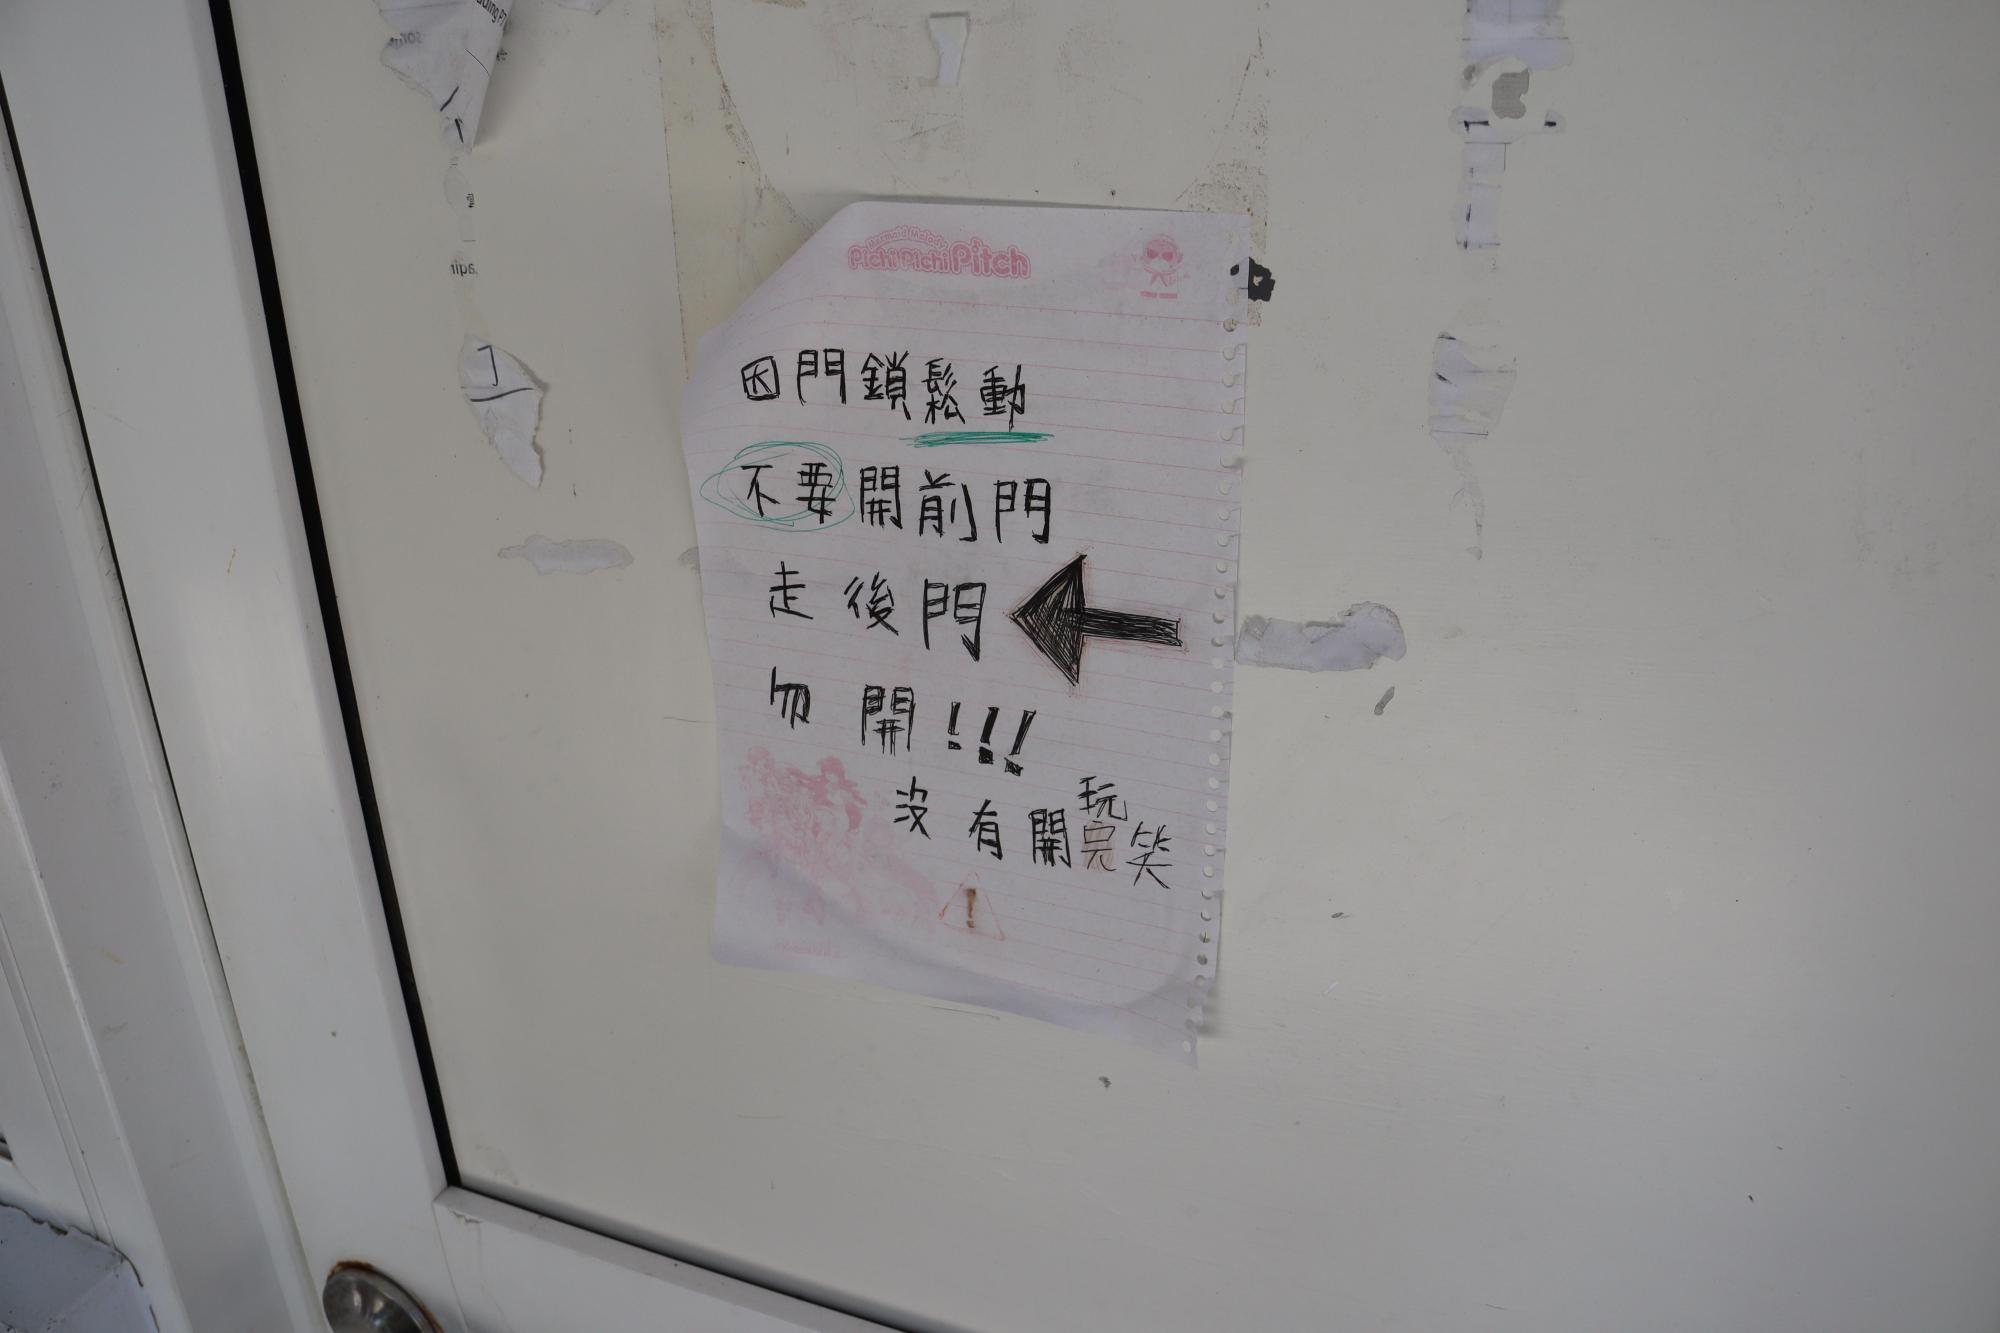 Mermaid Melody
Pichi Pichi Pitch
因門鎖鬆動
不要開前門
走後門
勿開!!!
沒有開玩笑
!